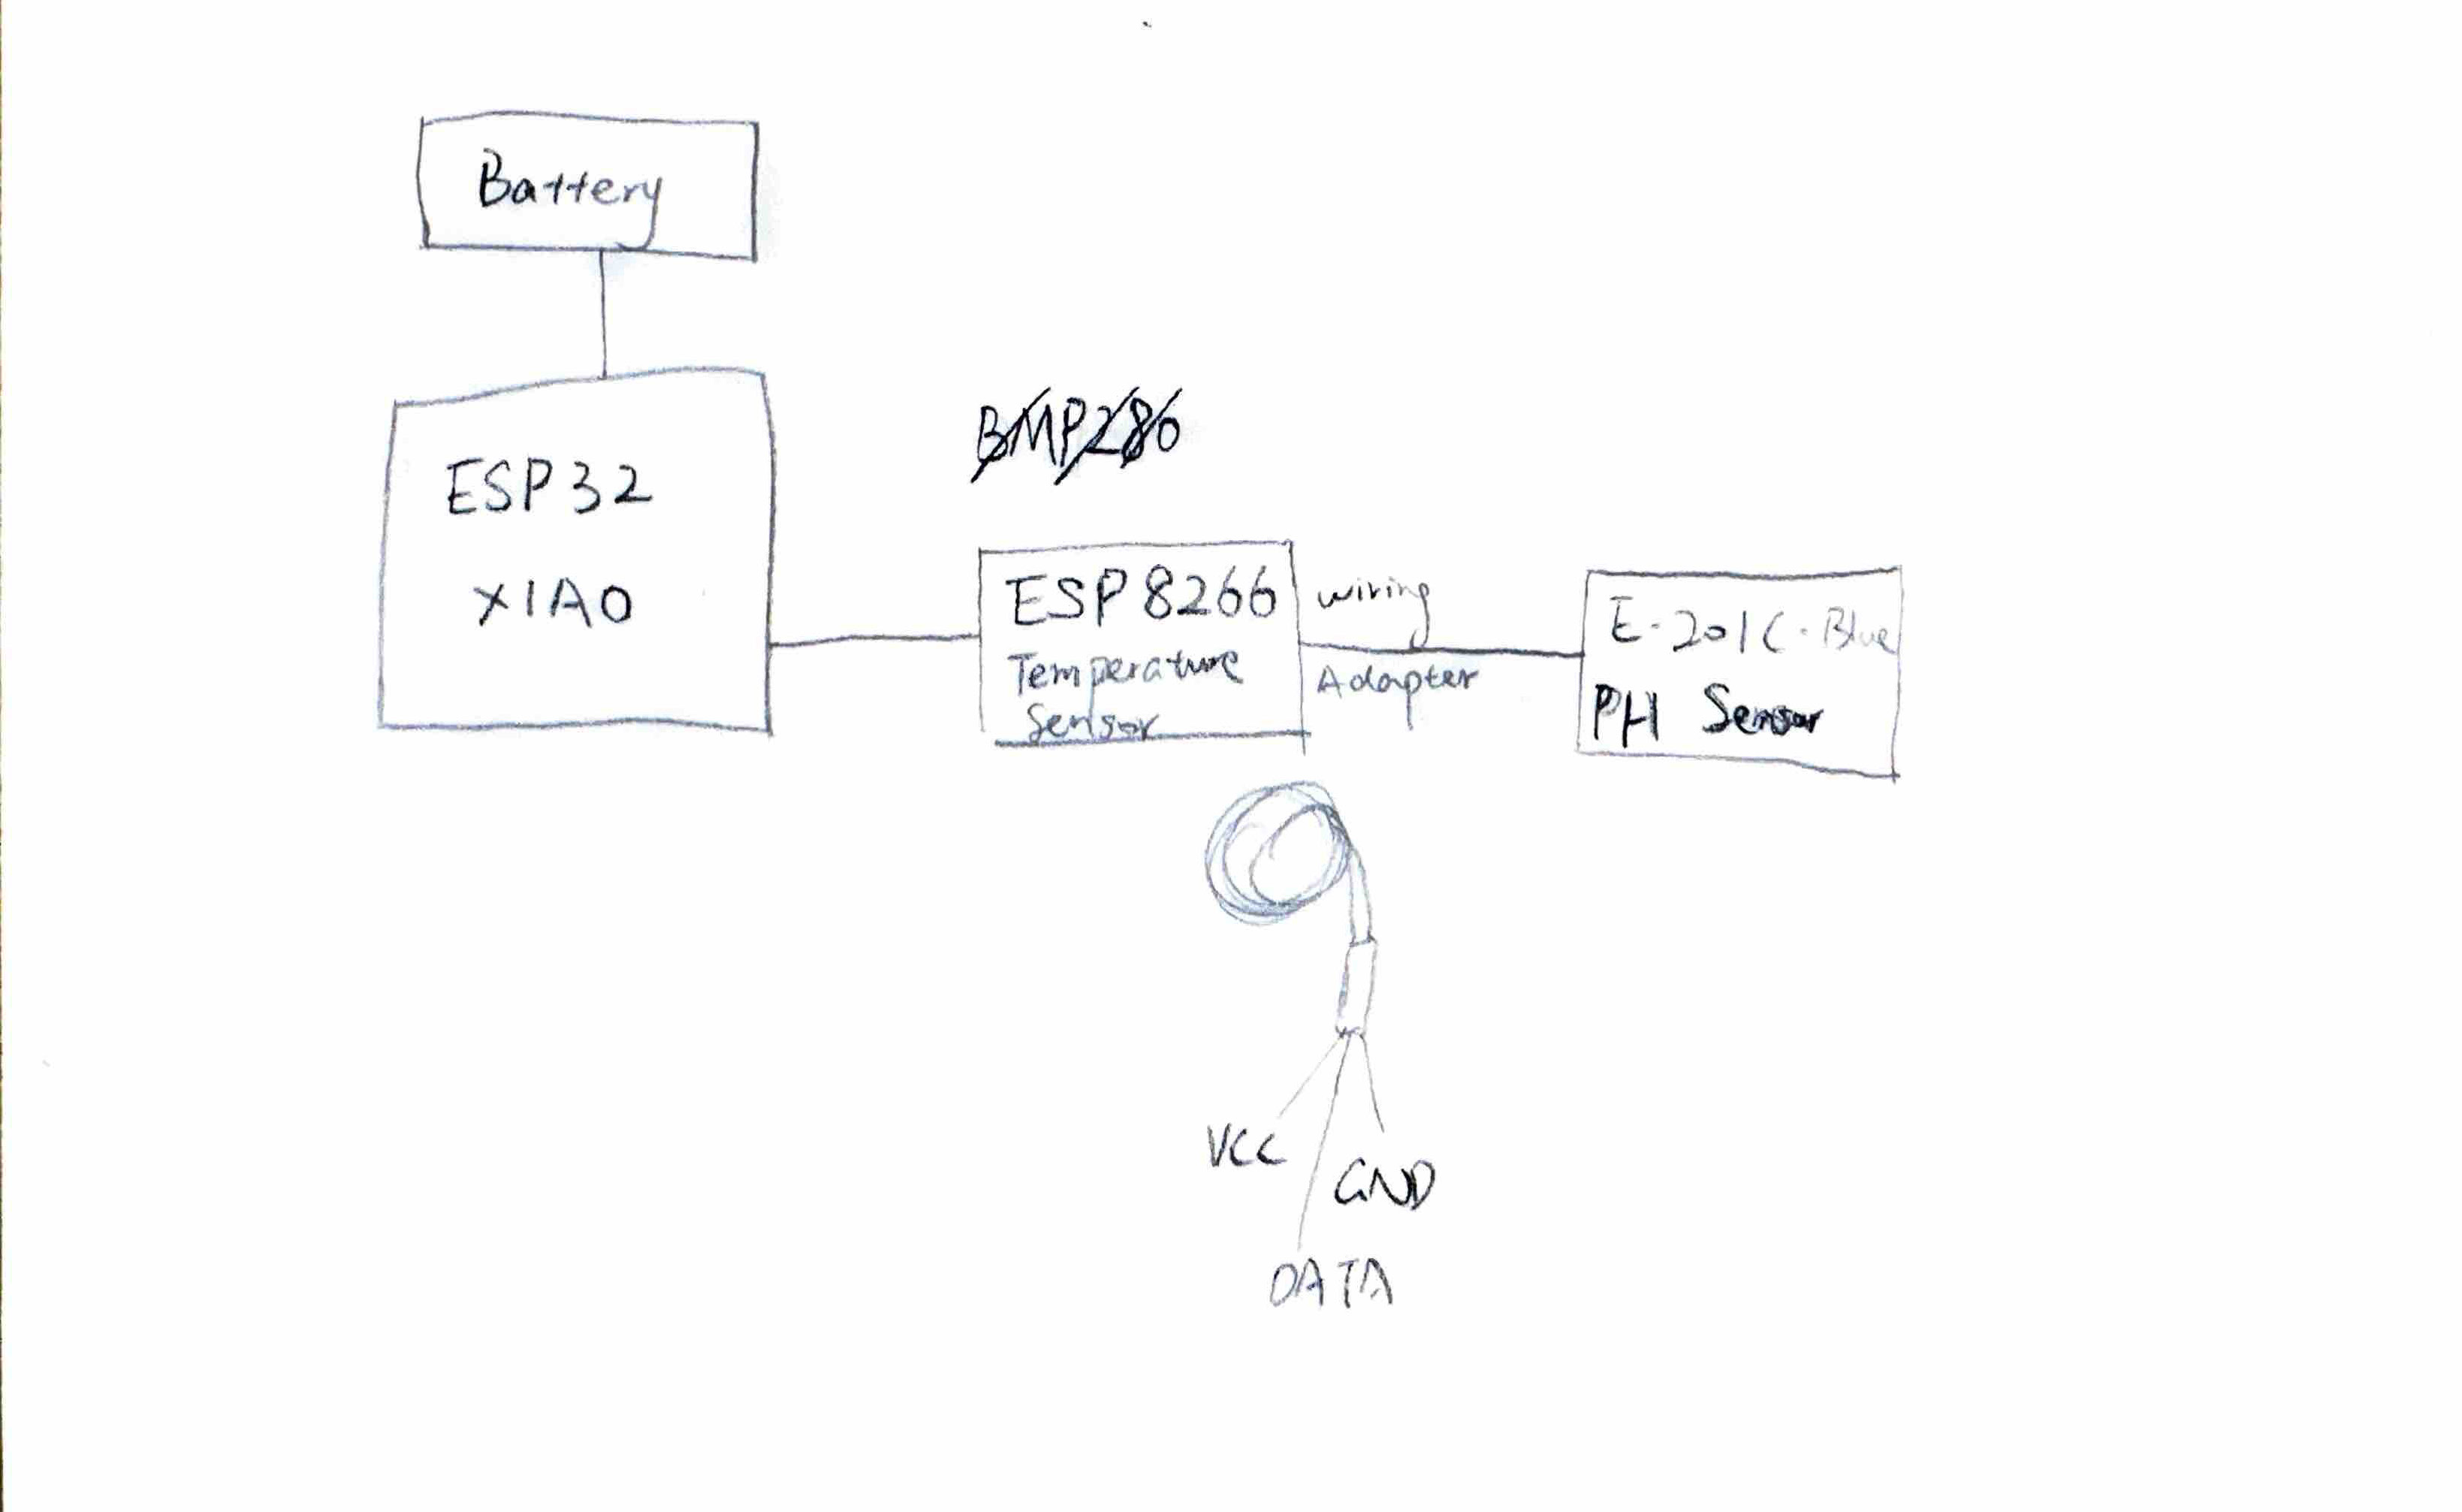 Battery
ESP32
XIAO
BMP280
ESP8266
Temperature
Sensor
wiring
Adapter
E-201C-Blue
PH Sensor
VCC
GND
DATA